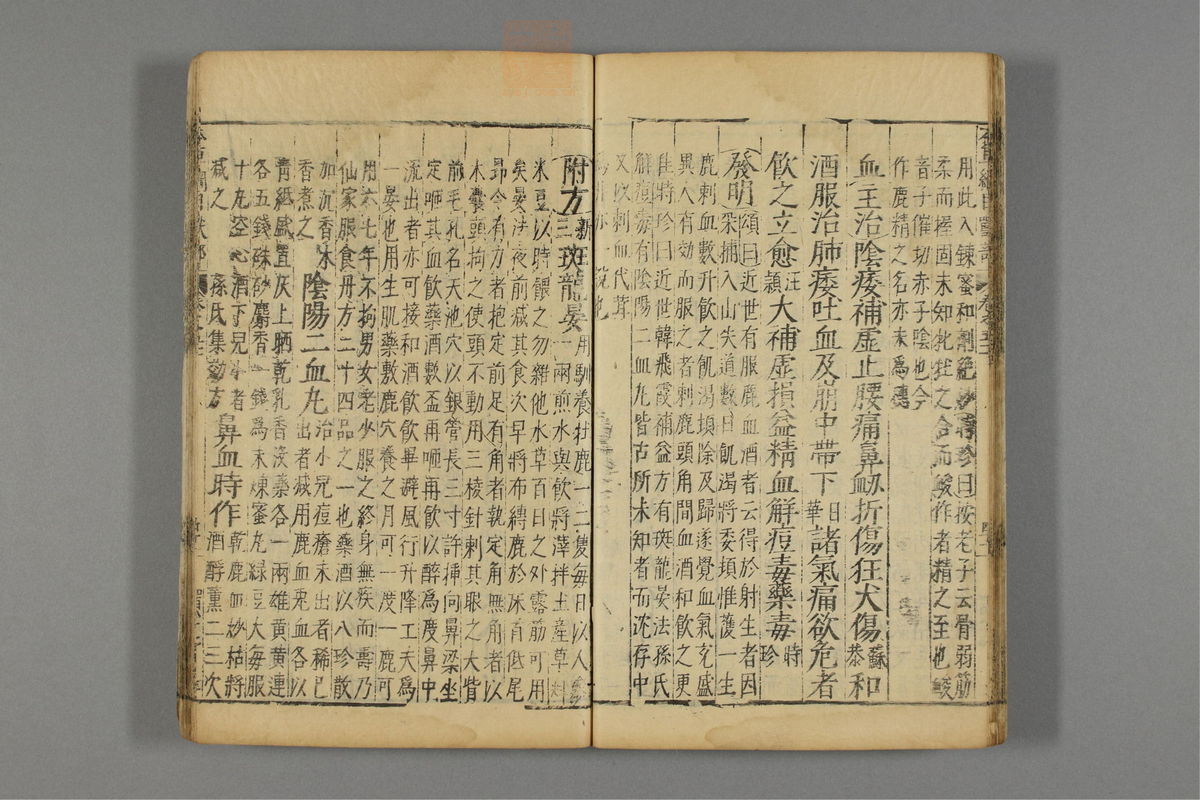 用此入鍊蜜和劑絕妙時珍曰按老子云骨弱筋
柔而握固未知牝牡之合而峻作者精之至也峻
音子催切赤子陰也今
作鹿精之名亦未為穩
血主治陰痿補虛止腰痛鼻衂折傷狂犬傷蘇恭和
酒服治肺痿吐血及崩中帶下日華諸氣痛欲危者
飲之立愈汪穎大補虛損益精血解痘毒藥毒時珍
發明頌曰近世有服鹿血酒者云得於射生者因
采捕入山失道數日飢渴將委頓惟獲一生
鹿刺血數升飲之飢渴頓除及歸遂覺血氣充盛
異人有効而服之者刺鹿頭角間血酒和飲之更
佳時珍曰近世韓飛霞補益方有斑龍宴法孫氏
解痘毒有陰陽二血丸皆古所未知者而沈存中
又以刺血代茸
附方新三斑龍宴用馴養牡鹿一二隻每日以人參
一兩煎水與飲將滓拌土產草料
米豆以時餵之勿雜他水草百日之外露筋可用
矣宴法夜前減其食次早將布縛鹿於床首低尾
昂令有力者抱定前足有角者執定角無角者以
木囊頭拘之使頭不動用三棱針刺其眼之大眥
前毛孔名天池穴以銀管長三寸許插向鼻梁坐
定咂其血飲藥酒數盃再咂再飲以醉為度鼻中
流出者亦可接和酒飲飲畢避風行升降工夫為
一宴也用生肌藥敷鹿穴養之月可一度一鹿可
用六七年不拘男女老少服之終身無疾而壽乃
仙家服食丹方二十四品之一也藥酒以八珍散
加沉香木香煮之陰陽二血丸治小兒痘瘡未出者稀已
出者減用鹿血兔血各以
青紙盛置灰上晒乾乳香沒藥各一兩雄黄黄連
各五錢硃砂麝香一錢為末煉蜜丸綠豆大每服
十丸空心酒下兒小者
減之孫氏集効方鼻血時作乾鹿血炒枯將
酒酹薰二三次